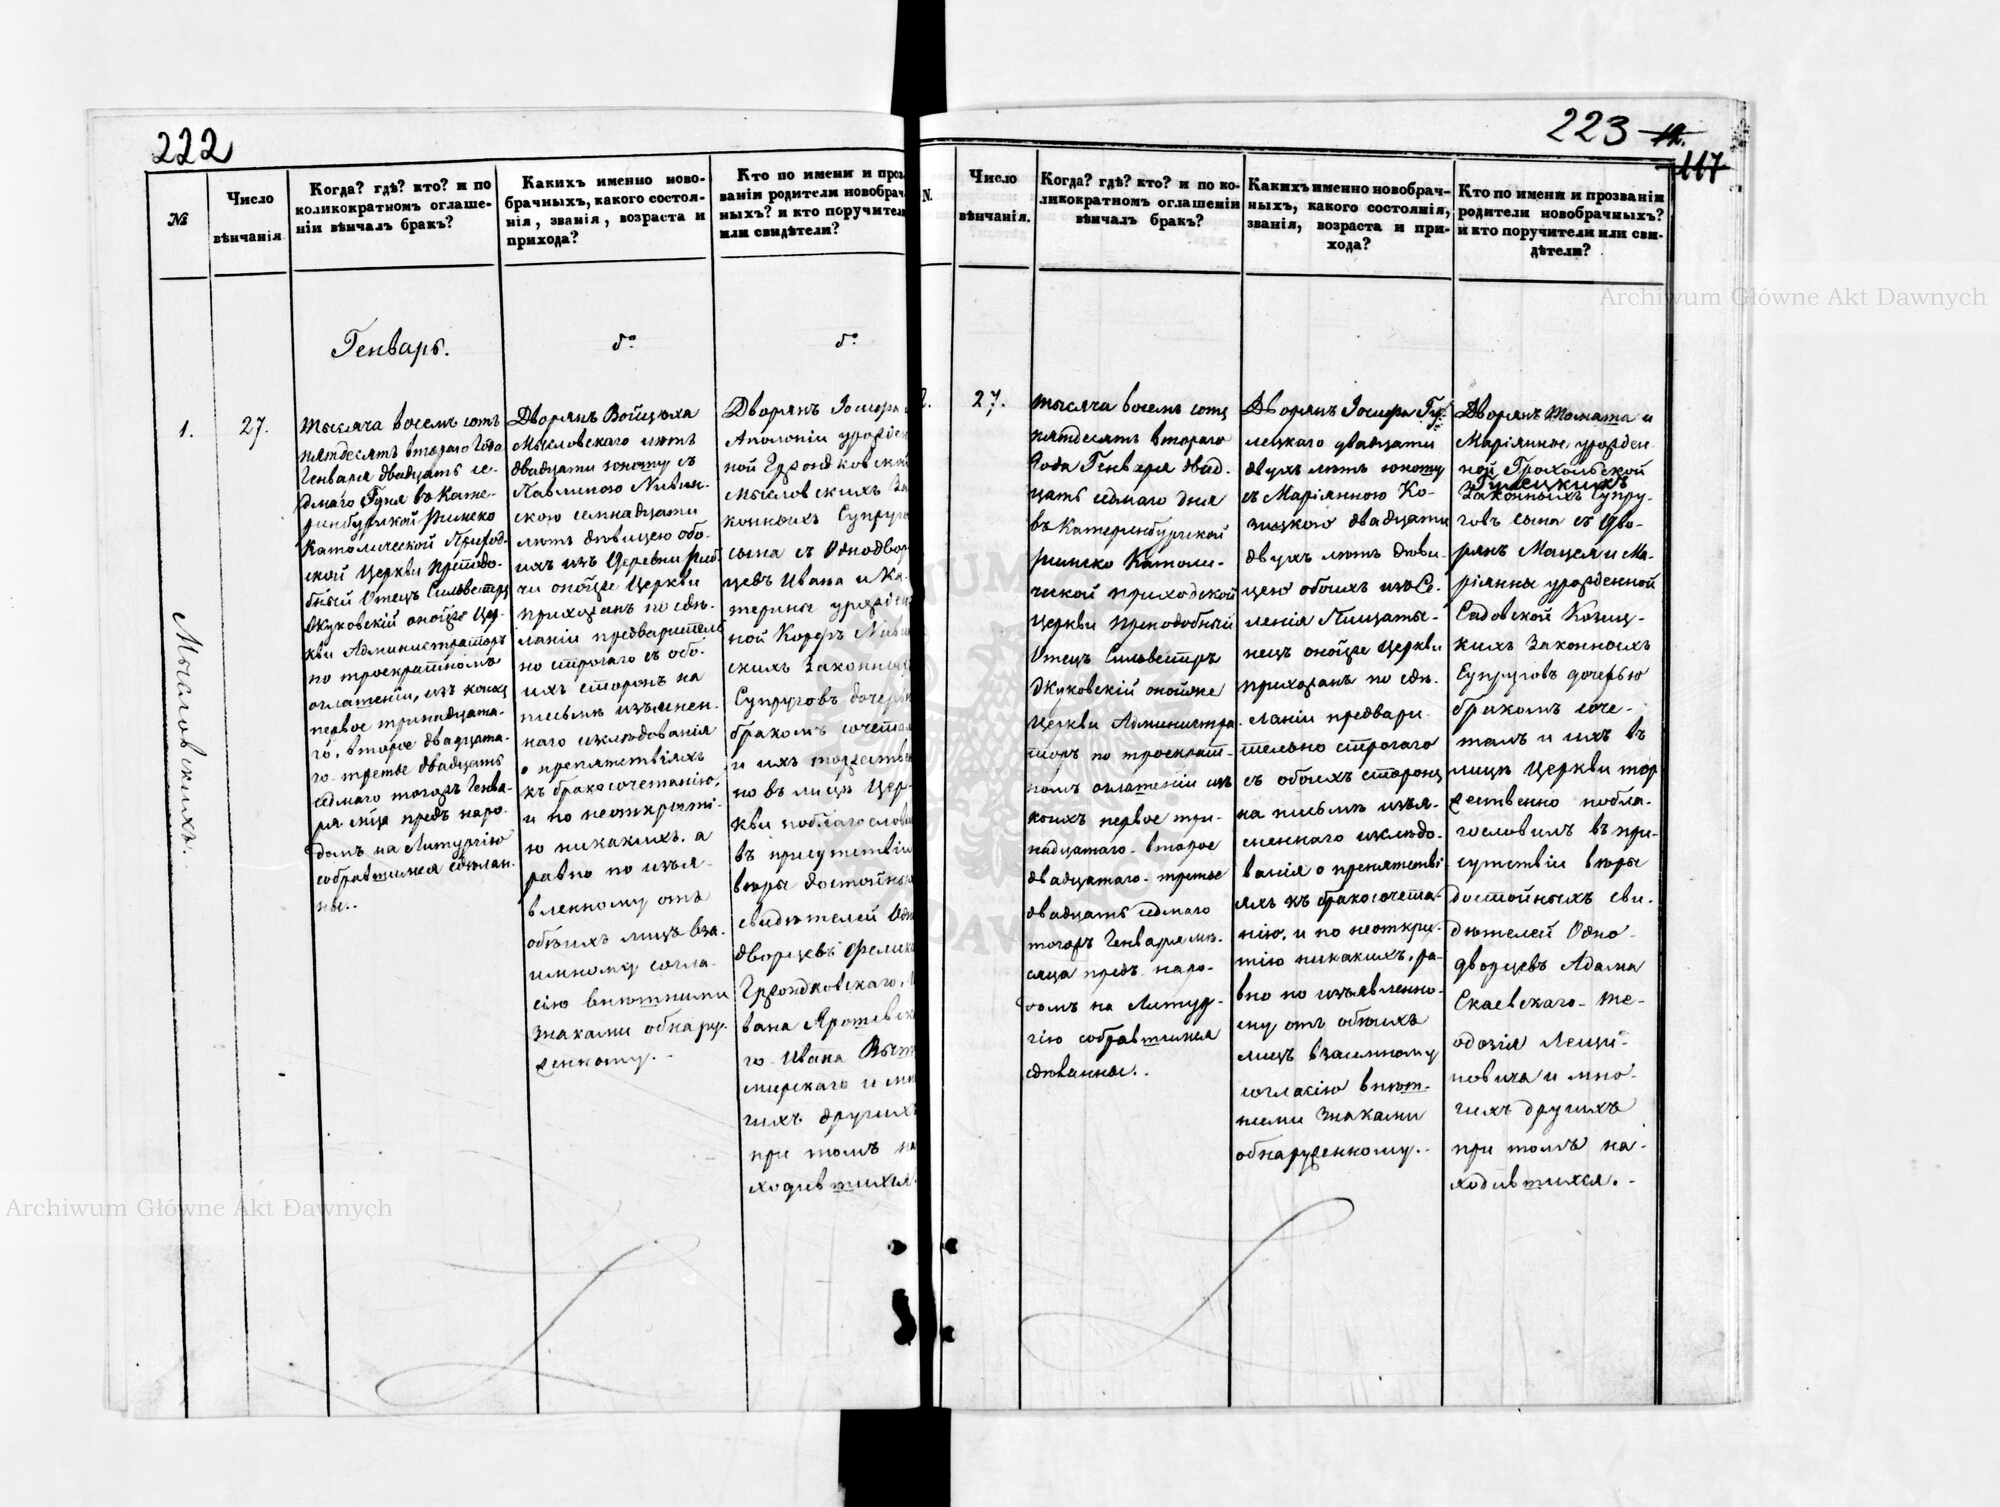 222
№
Число
вѣнчанія
Когда? гдѣ? кто? и по
коликократномъ оглаше-
ніи вѣнчалъ бракъ?
Какихъ именно ново-
брачныхъ, какого состоя-
нія, званія, возраста и
прихода?
Кто по имени и проз
ваніи родители новобрач
ныхъ? и кто поручител
или свидѣтели?
Генварь.
1.
27.
Мысловскихъ.
тысяча восемъ сотъ
пятдесятъ втораго Года
Генваря двадцать се-
дмаго Дня въ Кате-
ринбургской Римско
Католической Приход-
ской Церкви Преподо-
бный Отецъ Сильвестръ
онойже Цер-
кви Администраторъ
по троекратномъ
оглашеніи, изъ коихъ
первое тринадцата-
го, второе двадцата-
го третье двадцать
седмаго тогожъ Генва-
ря м-ца предъ наро-
домъ на Литургію
собравшимся сдѣлан-
ны..
Дворянъ Войцѣха
Мысловскаго лѣтъ
двадцати юношу съ
Павлиною
скою семнадцати
лѣтъ дѣвицею обо-
ихъ изъ Деревни
онойже Церкви
прихожанъ по сдѣ-
ланіи предваритель
но строгаго съ обо-
ихъ сторонъ на
письмѣ изъяснен-
наго изслѣдованія
о препятствіяхъ
къ бракосочетанію,
и по неоткрыті-
ю никакихъ. а
равно по изъя-
вленному отъ
обѣихъ лицъ вза-
имному согла-
сію внѣшними
знаками обнару-
женному..
Дворянъ Іосифа
Аполоніи урожден
ной Гржондковской
Мысловскихъ За
конныхъ Супруго
сына съ Однодвор
цевъ Ивана и Ка-
терины урожден
ной
скихъ Законныхъ
Супруговъ дочерью
бракомъ сочеталъ
и ихъ торжествен
но въ лицѣ Цер-
кви поблагослови
въ присутствіи
вѣры достойныхъ
свидѣтелей Одно
дворцевъ Феликса
Гржондковскаго,
вана
го Ивана
мирскаго и мно
гихъ другихъ
при томъ на
ходившихся.
223
117
N.
Число
вѣнчанія.
Когда? гдѣ? кто? и по ко-
ликократномъ оглашеніи
вѣнчалъ бракъ?
Какихъ именно новобрач-
ныхъ, какого состоянія,
званія, возраста и при-
хода?
Кто по имени и прозваніи
родители новобрачныхъ?
и кто поручители или сви-
дѣтели?
2.
27.
тысяча восемъ сотъ
пятдесятъ втораго
Года Генваря двад-
цать седмаго дня
въ Катеринбургской
Римско Католи-
ческой приходской
Церкви Преподобный
Отецъ Сильвестръ
онойже
Церкви Администра-
торъ по троекрат-
номъ оглашеніи изъ
коихъ первое три-
надцатаго второе
двадцатаго третье
двадцать седмаго
тогожъ Генваря мѣ-
сяца предъ наро-
домъ на Литур-
гію собравшимся
сдѣланны..
Дворянъ Іосифа Гу-
лецкаго двадцати
двухъ лѣтъ юношу
съ Маріянною Ко-
зицкою двадцати
двухъ лѣтъ дѣви-
цею обоихъ изъ Се-
ленія
онойже Церкви
прихожанъ по сдѣ-
ланіи предвари-
тельно строгаго
съ обоихъ сторонъ
на письмѣ изъя-
сненнаго изслѣдо-
ванія о препятстві-
яхъ къ бракосочета-
нію, и по неоткры-
тію никакихъ, ра-
вно по изъявленно-
му отъ обѣихъ
лицъ взаимному
согласію внѣш-
ними знаками
обнаруженному..
Дворянъ Томаша и
Маріянны урожден-
ной Грохольской
Гулецкихъ
Законныхъ Супру-
говъ сына съ Дво-
рянъ Мацея и Ма-
ріянны урожденной
Садовской Козиц-
кихъ Законныхъ
Супруговъ дочерью
бракомъ соче-
талъ и ихъ въ
лицѣ Церкви тор
жественно побла-
гословилъ въ при-
сутствіи вѣры
достойныхъ сви-
дѣтелей Одно-
дворцевъ Адама
Скаевскаго Те-
одозія Лещи-
новича и мно-
гихъ другихъ
при томъ на-
ходившихся.
Archiwum Główne Akt Dawnych
Archiwum Główne Akt Dawnych